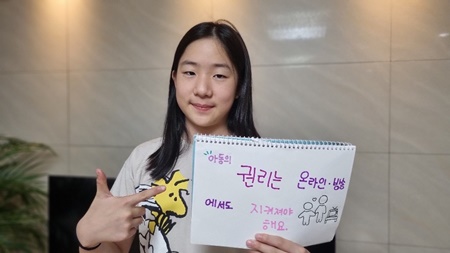 아동의
권리는 온라인·방송
에서도 지켜져야
해요.